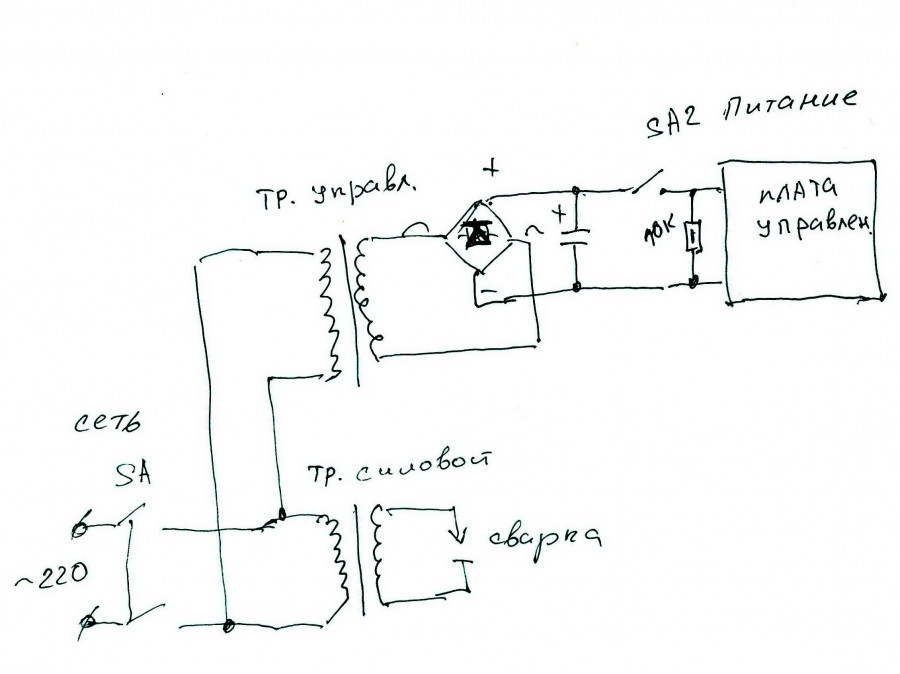 SA2 Питание
ТР. управл.
+
~
+
10К
ПЛАТА
УПРАВЛЕН.
-
СЕТЬ
SA
~220
ТР. силовой
сварка